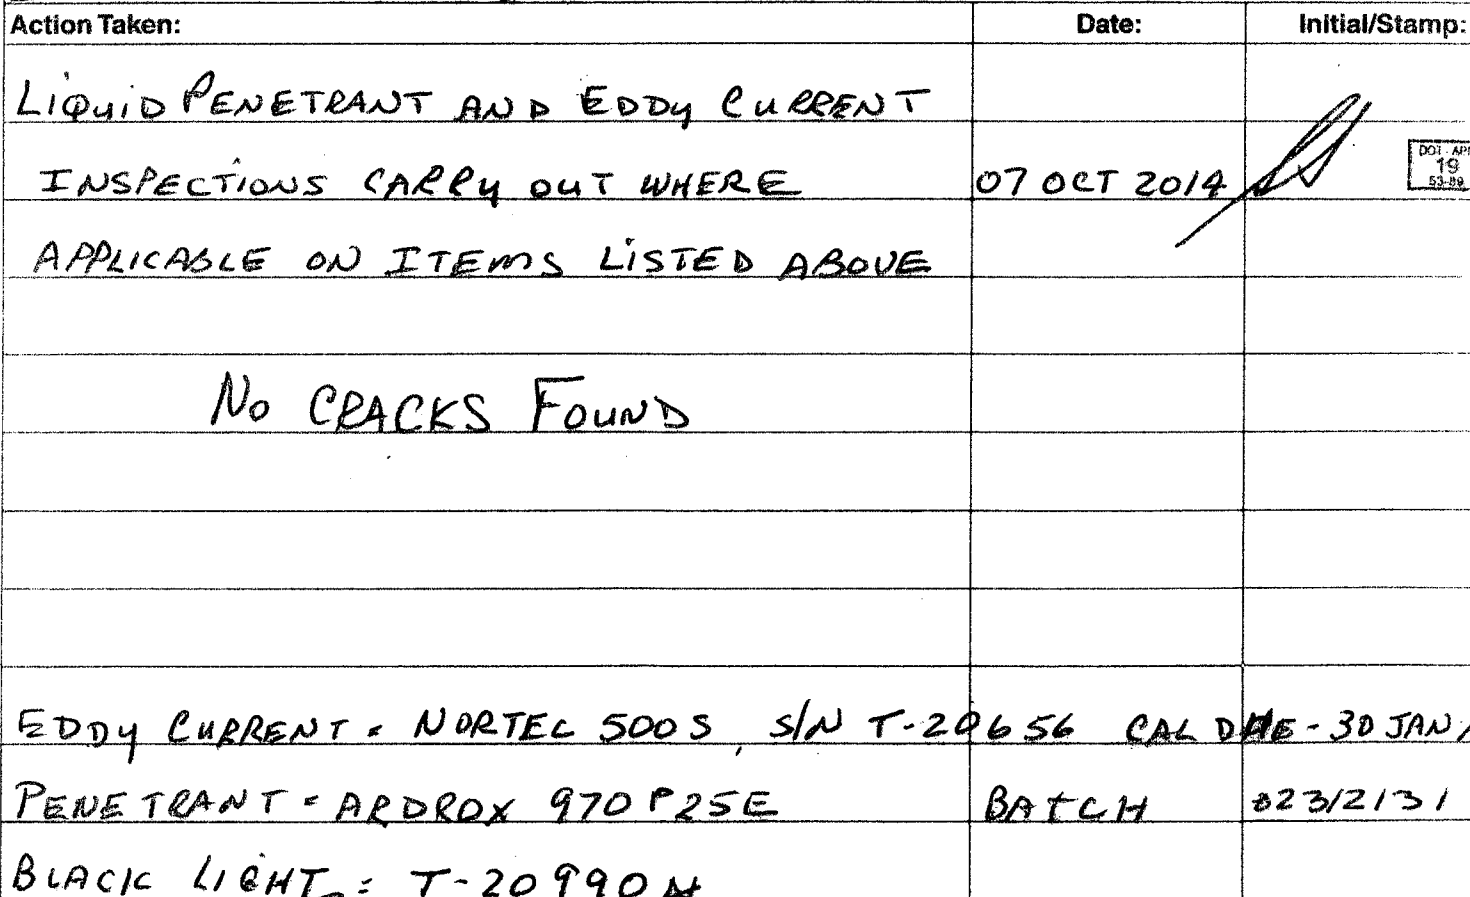 Action Taken: Date: Initial/Stamp:
LIQUID PENETRANT AND EDDY CURRENT
INSPECTIONS CARRY OUT WHERE 07 OCT 2014
19
53-89
APPLICABLE ON ITEMS LISTED ABOVE
NO CRACKS FOUND
EDDY CURRENT = NORTEC 500S, S/N T-20656 CAL DUE - 30 JAN
PENETRANT = ARDROX 970 P25E BATCH 02312131
BLACK LIGHT = T-20990